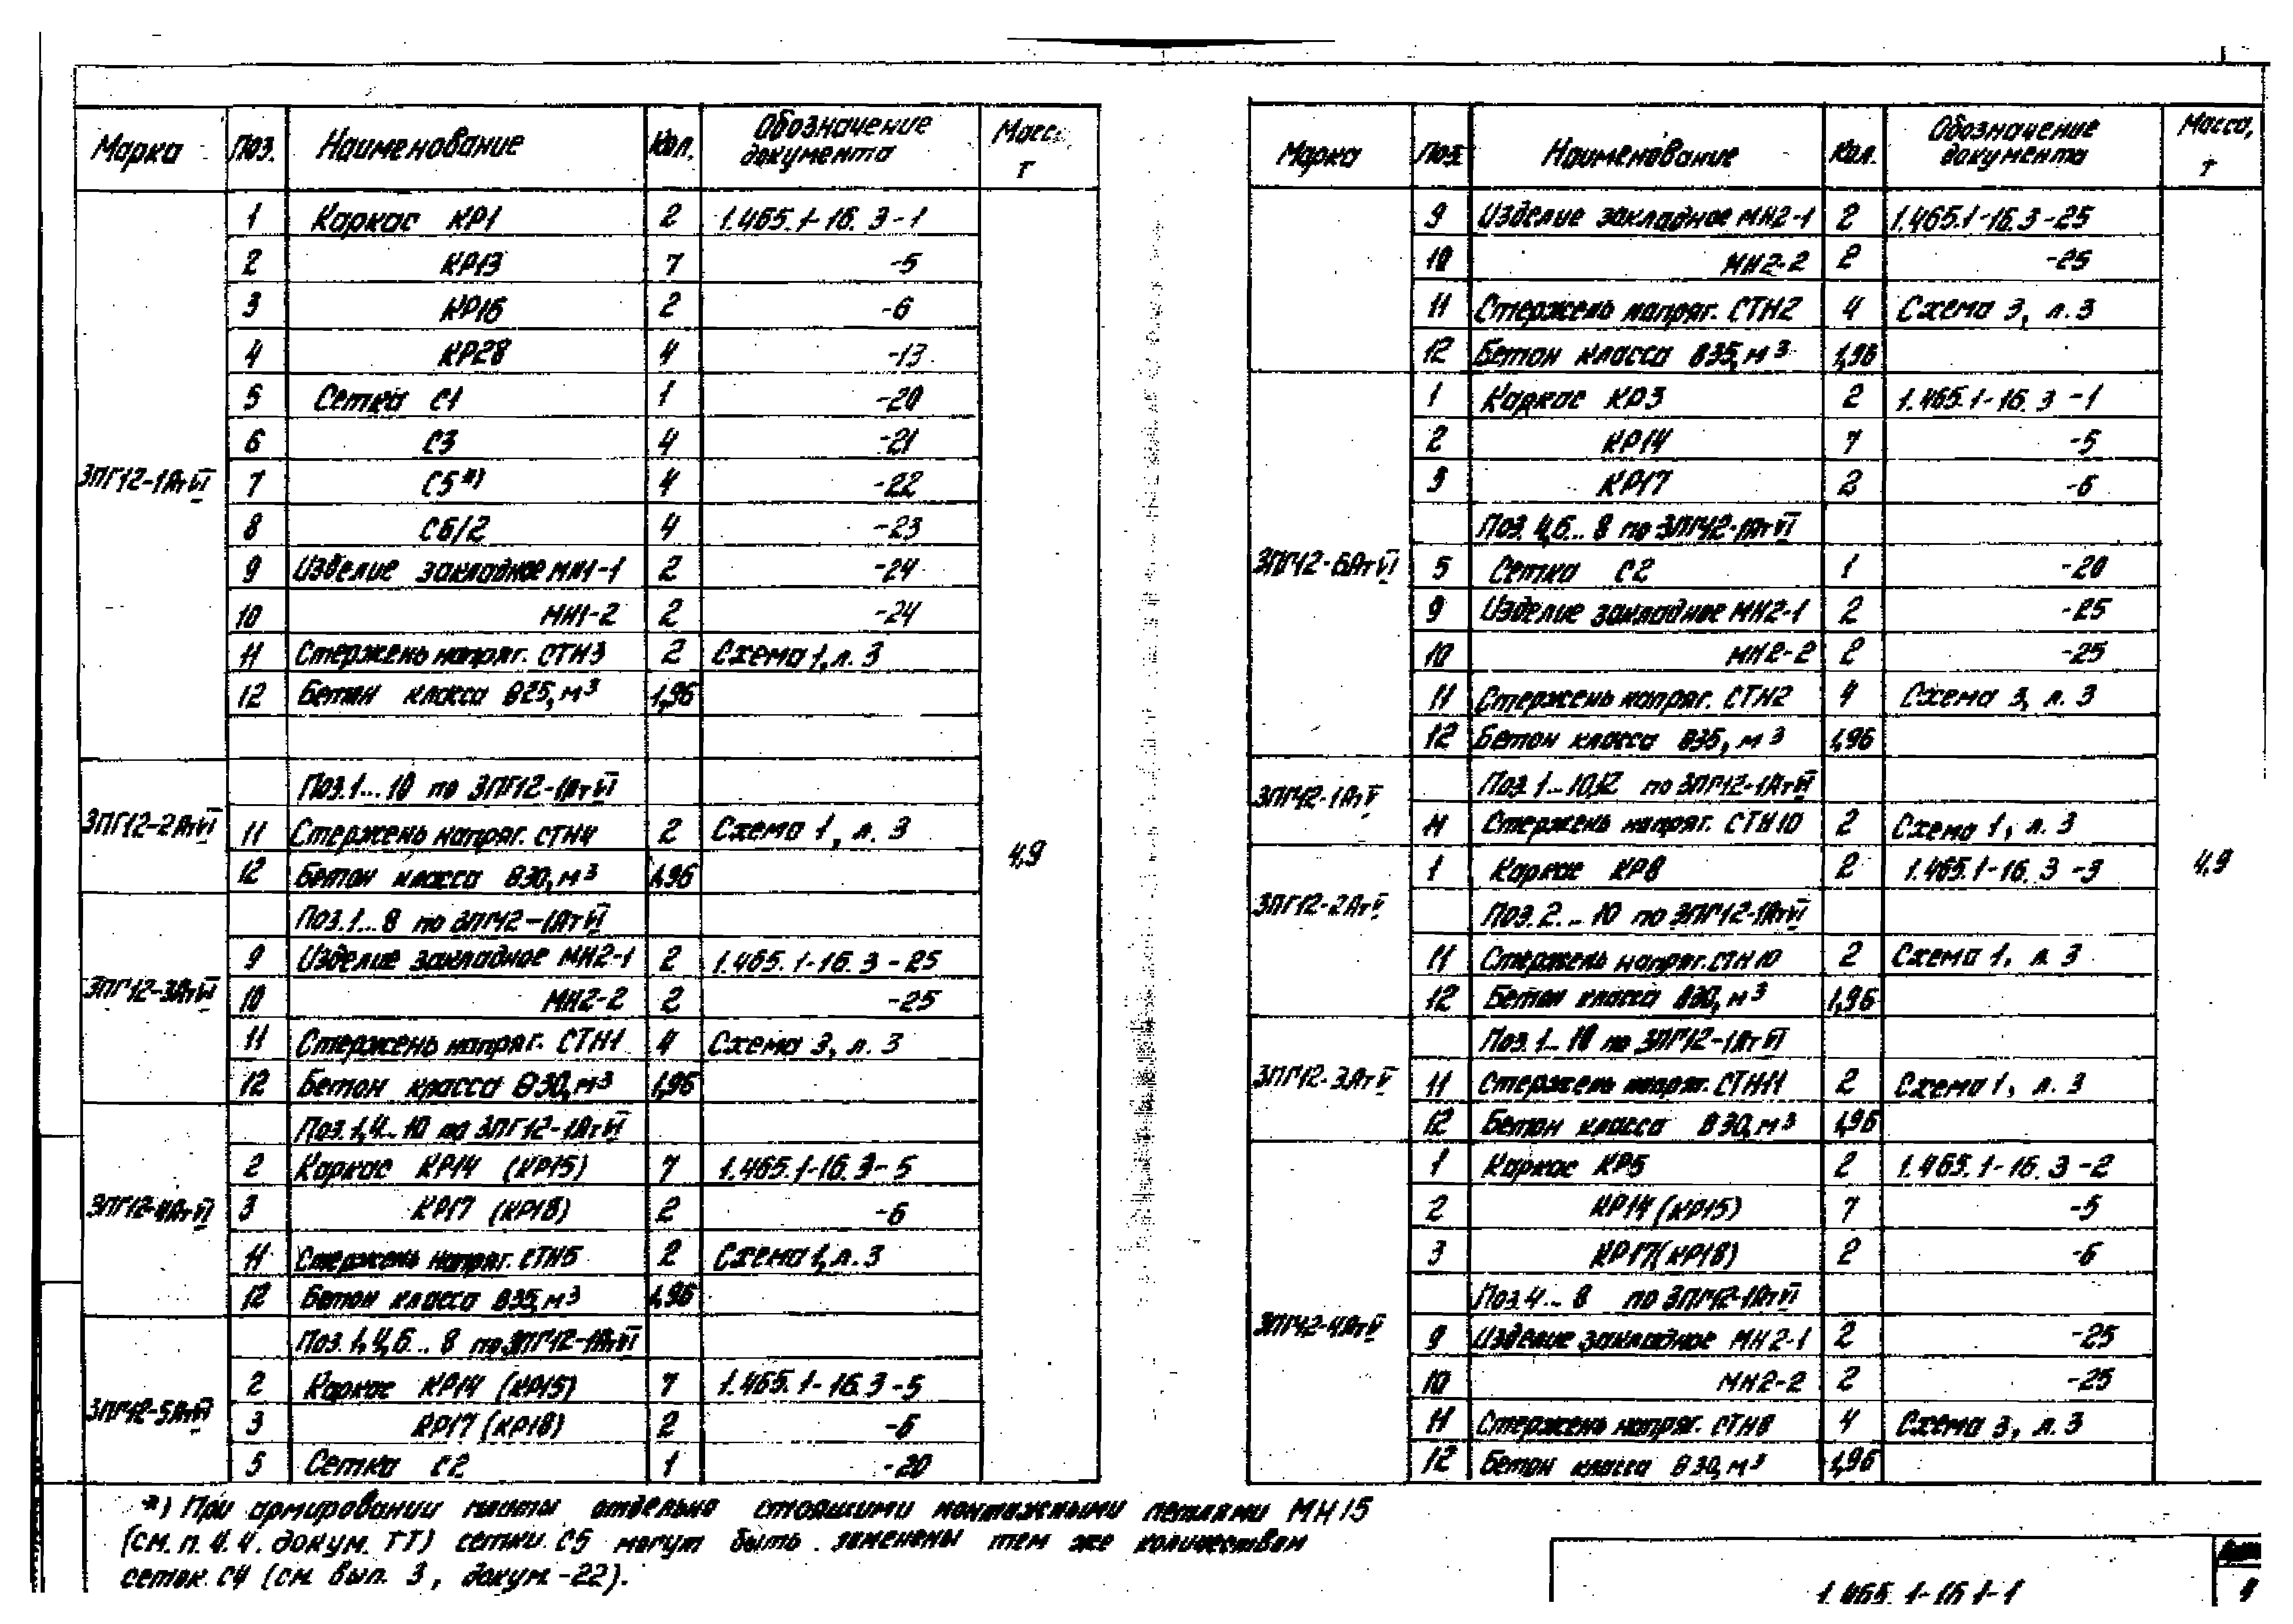 Марка Поз. Наименование Кол. Обозначение документа Масса, т
3ПГ12-1АтVI
1 Каркас КР1 2 1.465.1-16.3-1
2 КР13 7 -5
3 КР16 2 -6
4 КР28 4 -13
5 Сетка С1 1 -20
6 С3 4 -21
7 С5*) 4 -22
8 С6/2 4 -23
9 Изделие закладное МН1-1 2 -24
10 МН1-2 2 -24
11 Стержень напряг. СТН3 2 Схема 1, л. 3
12 Бетон класса В25, м³ 1,96
3ПГ12-2АтVI
Поз. 1...10 по 3ПГ12-1АтVI
11 Стержень напряг. СТН4 2 Схема 1, л. 3
12 Бетон класса В30, м³ 1,96
4,9
3ПГ12-3АтVI
Поз. 1...8 по 3ПГ12-1АтVI
9 Изделие закладное МН2-1 2 1.465.1-16.3-25
10 МН2-2 2 -25
11 Стержень напряг. СТН1 4 Схема 3, л. 3
12 Бетон класса В30, м³ 1,96
3ПГ12-4АтVI
Поз. 1,4...10 по 3ПГ12-1АтVI
2 Каркас КР14 (КР15) 7 1.465.1-16.3-5
3 КР17 (КР18) 2 -6
11 Стержень напряг. СТН5 2 Схема 1, л. 3
12 Бетон класса В35, м³ 1,96
3ПГ12-5АтVI
Поз. 1,4,6...8 по 3ПГ12-1АтVI
2 Каркас КР14 (КР15) 7 1.465.1-16.3-5
3 КР17 (КР18) 2 -6
5 Сетка С2 1 -20
*) При армировании плиты отдельно стоящими монтажными петлями МН15
(см. п. 4.4. докум. ТТ) сетки С5 могут быть заменены тем же количеством
сеток С4 (см. вып. 3, докум. -22).
Марка Поз. Наименование Кол. Обозначение документа Масса, т
9 Изделие закладное МН2-1 2 1.465.1-16.3-25
10 МН2-2 2 -25
11 Стержень напряг. СТН2 4 Схема 3, л. 3
12 Бетон класса В35, м³ 1,96
3ПГ12-6АтVI
1 Каркас КР3 2 1.465.1-16.3-1
2 КР14 7 -5
3 КР17 2 -6
Поз. 4,6...8 по 3ПГ12-1АтVI
5 Сетка С2 1 -20
9 Изделие закладное МН2-1 2 -25
10 МН2-2 2 -25
11 Стержень напряг. СТН2 4 Схема 3, л. 3
12 Бетон класса В35, м³ 1,96
3ПГ12-1АтV
Поз. 1...10,12 по 3ПГ12-1АтVI
11 Стержень напряг. СТН10 2 Схема 1, л. 3
3ПГ12-2АтV
1 Каркас КР8 2 1.465.1-16.3-3
4,9
Поз. 2...10 по 3ПГ12-1АтVI
11 Стержень напряг. СТН10 2 Схема 1, л. 3
12 Бетон класса В30, м³ 1,96
3ПГ12-3АтV
Поз. 1...10 по 3ПГ12-1АтVI
11 Стержень напряг. СТН11 2 Схема 1, л. 3
12 Бетон класса В30, м³ 1,96
3ПГ12-4АтV
1 Каркас КР5 2 1.465.1-16.3-2
2 КР14 (КР15) 7 -5
3 КР17 (КР18) 2 -6
Поз. 4...8 по 3ПГ12-1АтVI
9 Изделие закладное МН2-1 2 -25
10 МН2-2 2 -25
11 Стержень напряг. СТН8 4 Схема 3, л. 3
12 Бетон класса В30, м³ 1,96
1.465.1-16.1-1